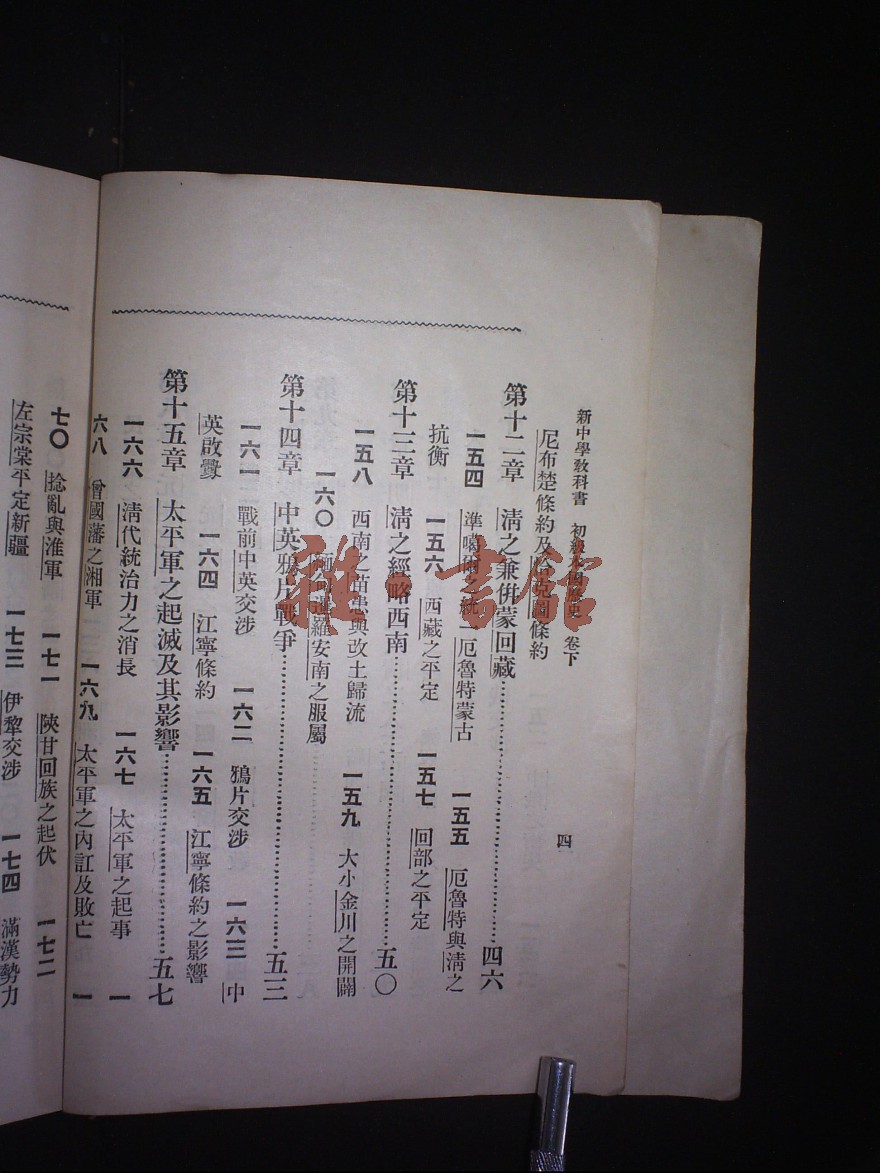 新中學教科書 初級本國歷史 卷下
四
尼布楚條約及恰克圖條約
第十二章 淸之兼併蒙回藏……四六
一五四 準噶爾之統一厄魯特蒙古 一五五 厄魯特與淸之
抗衡 一五六 西藏之平定 一五七 回部之平定
第十三章 淸之經略西南……五〇
一五八 西南之苗患與改土歸流 一五九 大小金川之開闢
一六〇 緬甸暹羅安南之服屬
第十四章 中英鴉片戰爭……五三
一六一 戰前中英交涉 一六二 鴉片交涉 一六三 中
英啟釁 一六四 江寧條約 一六五 江寧條約之影響
第十五章 太平軍之起滅及其影響……五七
一六六 淸代統治力之消長 一六七 太平軍之起事 一
六八 曾國藩之湘軍 一六九 太平軍之內訌及敗亡 一
七〇 捻亂與淮軍 一七一 陝甘回族之起伏 一七二
左宗棠平定新疆 一七三 伊犂交涉 一七四 滿漢勢力
雅·書館